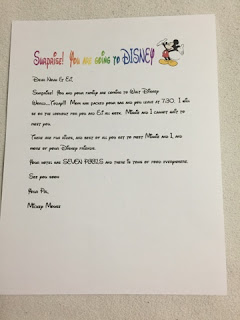 Surprise! You are going to DISNEY
Dear Noah & Ed,
Surprise! You and your family are coming to Walt Disney
World....Today!! Mom has packed your bag and you leave at 7:30. I will
be on the lookout for you and Ed all week. Minnie and I cannot wait to
meet you.
There are fun rides, and best of all you get to meet Minnie and I, and
more of your Disney friends.
Your hotel has SEVEN POOLS and there is tons of food everywhere.
See you soon
Your Pal,
Mickey Mouse